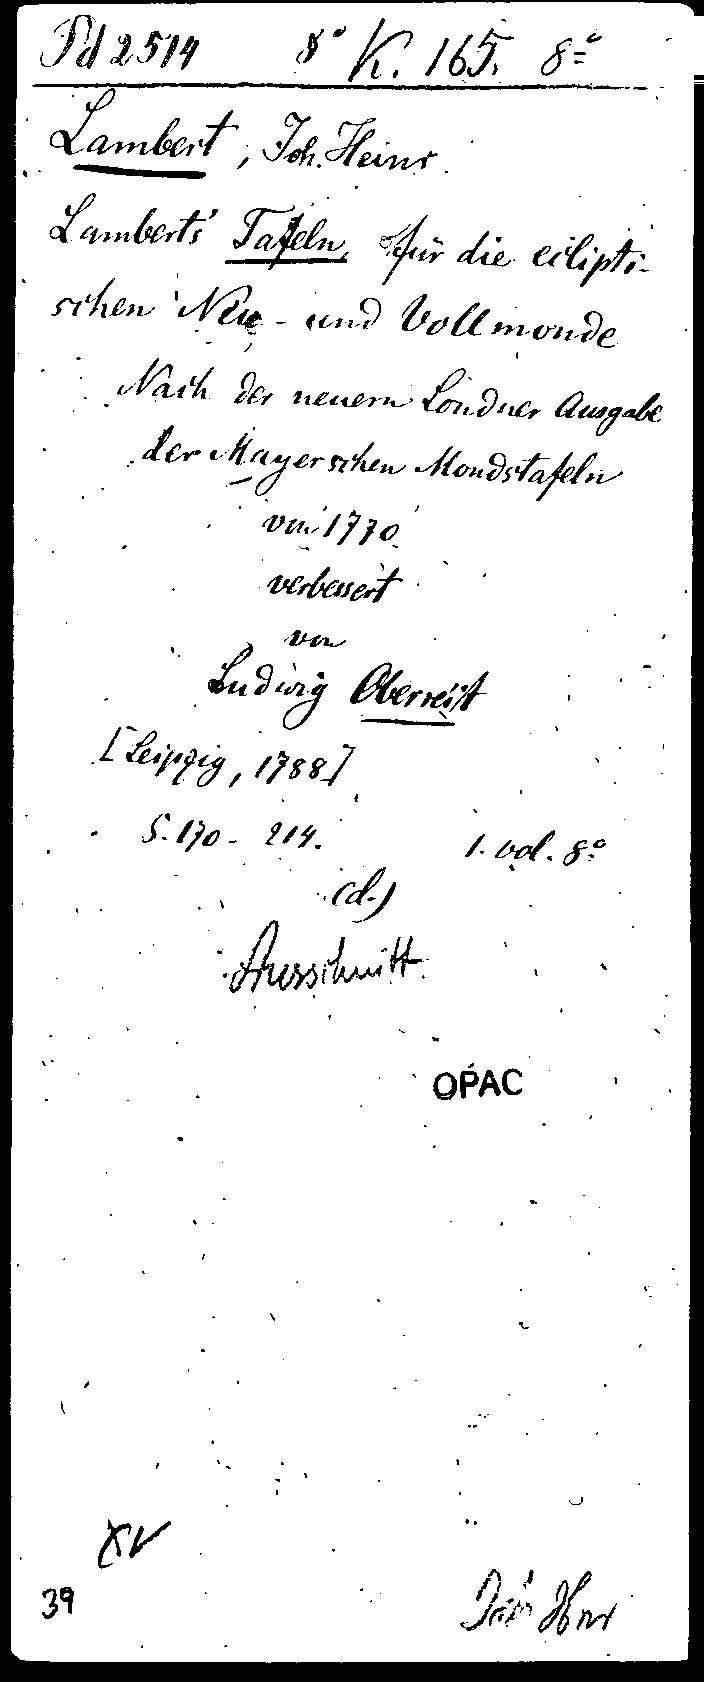 Pd 2514 8° K. 165. 8°
Lambert, Joh. Heinr.
Lamberts' Tafeln, für die eclipti-
schen Neu- und Vollmonde
Nach der neuern Londner Ausgabe
der Mayerschen Mondstafeln
von 1770
verbessert
von
Ludwig Oberreit
[Leipzig, 1788]
S. 170 - 214.
1. vol. 8°
(d.)
Ausschnitt
OPAC
XV
39